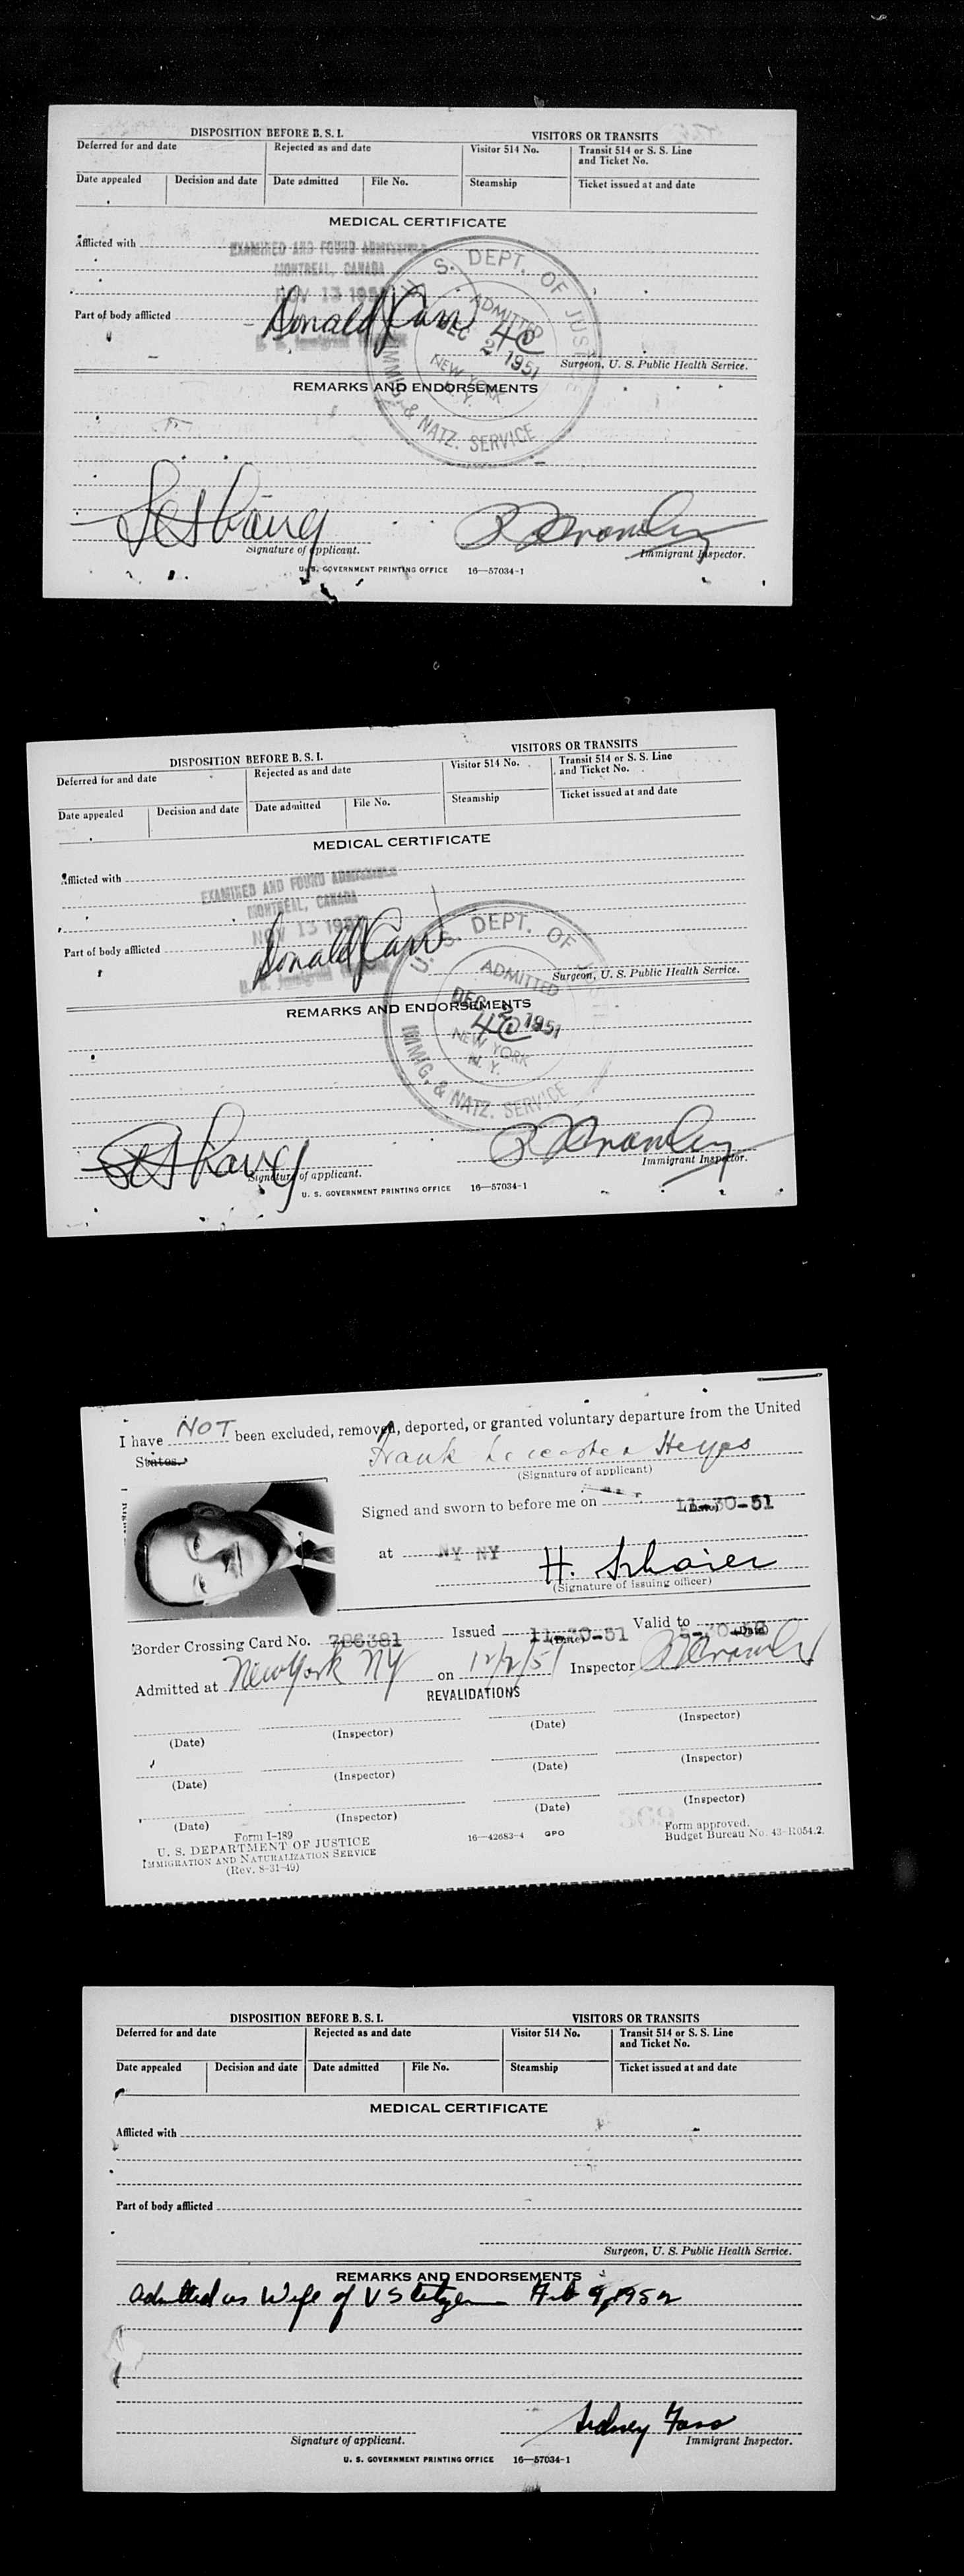 DISPOSITION BEFORE B. S. I. VISITORS OR TRANSITS
Deferred for and date Rejected as and date Visitor 514 No. Transit 514 or S. S. Line and Ticket No.
Date appealed Decision and date Date admitted File No. Steamship Ticket issued at and date
MEDICAL CERTIFICATE
Afflicted with
EXAMINED AND FOUND ADMISSIBLE
MONTREAL, CANADA
NOV 13 195
Part of body afflicted
Donald Carr
U. S. DEPT. OF JUSTICE
ADMITTED
DEC 2 1951
4
NEW YORK
N. Y.
IMMIG. & NATZ. SERVICE
Surgeon, U. S. Public Health Service.
REMARKS AND ENDORSEMENTS
Signature of applicant. Immigrant Inspector.
U. S. GOVERNMENT PRINTING OFFICE 16—57034-1
DISPOSITION BEFORE B. S. I. VISITORS OR TRANSITS
Deferred for and date Rejected as and date Visitor 514 No. Transit 514 or S. S. Line and Ticket No.
Date appealed Decision and date Date admitted File No. Steamship Ticket issued at and date
MEDICAL CERTIFICATE
Afflicted with
EXAMINED AND FOUND ADMISSIBLE
MONTREAL, CANADA
NOV 13 195
Part of body afflicted
Donald Carr
U. S. DEPT. OF
ADMITTED
DEC 2 1951
4
NEW YORK
N. Y.
IMMIG. & NATZ. SERVICE
Surgeon, U. S. Public Health Service.
REMARKS AND ENDORSEMENTS
Signature of applicant. Immigrant Inspector.
U. S. GOVERNMENT PRINTING OFFICE 16—57034-1
I have NOT been excluded, removed, deported, or granted voluntary departure from the United
States.
Frank Heyes
(Signature of applicant)
Signed and sworn to before me on 11-30-51
(Date)
at NY NY
H. Schaier
(Signature of issuing officer)
Border Crossing Card No. 786381 Issued 11-30-51 Valid to 5-30-
(Date) (Date)
Admitted at New York NY on 12/2/51 Inspector
REVALIDATIONS
(Date) (Inspector) (Date) (Inspector)
(Date) (Inspector) (Date) (Inspector)
(Date) (Inspector) (Date) (Inspector)
Form I-189
U. S. DEPARTMENT OF JUSTICE
IMMIGRATION AND NATURALIZATION SERVICE
(Rev. 8-31-49)
16—42683-4 GPO
Form approved.
Budget Bureau No. 43-R054.2.
DISPOSITION BEFORE B. S. I. VISITORS OR TRANSITS
Deferred for and date Rejected as and date Visitor 514 No. Transit 514 or S. S. Line and Ticket No.
Date appealed Decision and date Date admitted File No. Steamship Ticket issued at and date
MEDICAL CERTIFICATE
Afflicted with
Part of body afflicted
Surgeon, U. S. Public Health Service.
REMARKS AND ENDORSEMENTS
Admitted as Wife of V Feb 9, 1952
Sidney Fass
Signature of applicant. Immigrant Inspector.
U. S. GOVERNMENT PRINTING OFFICE 16—57034-1